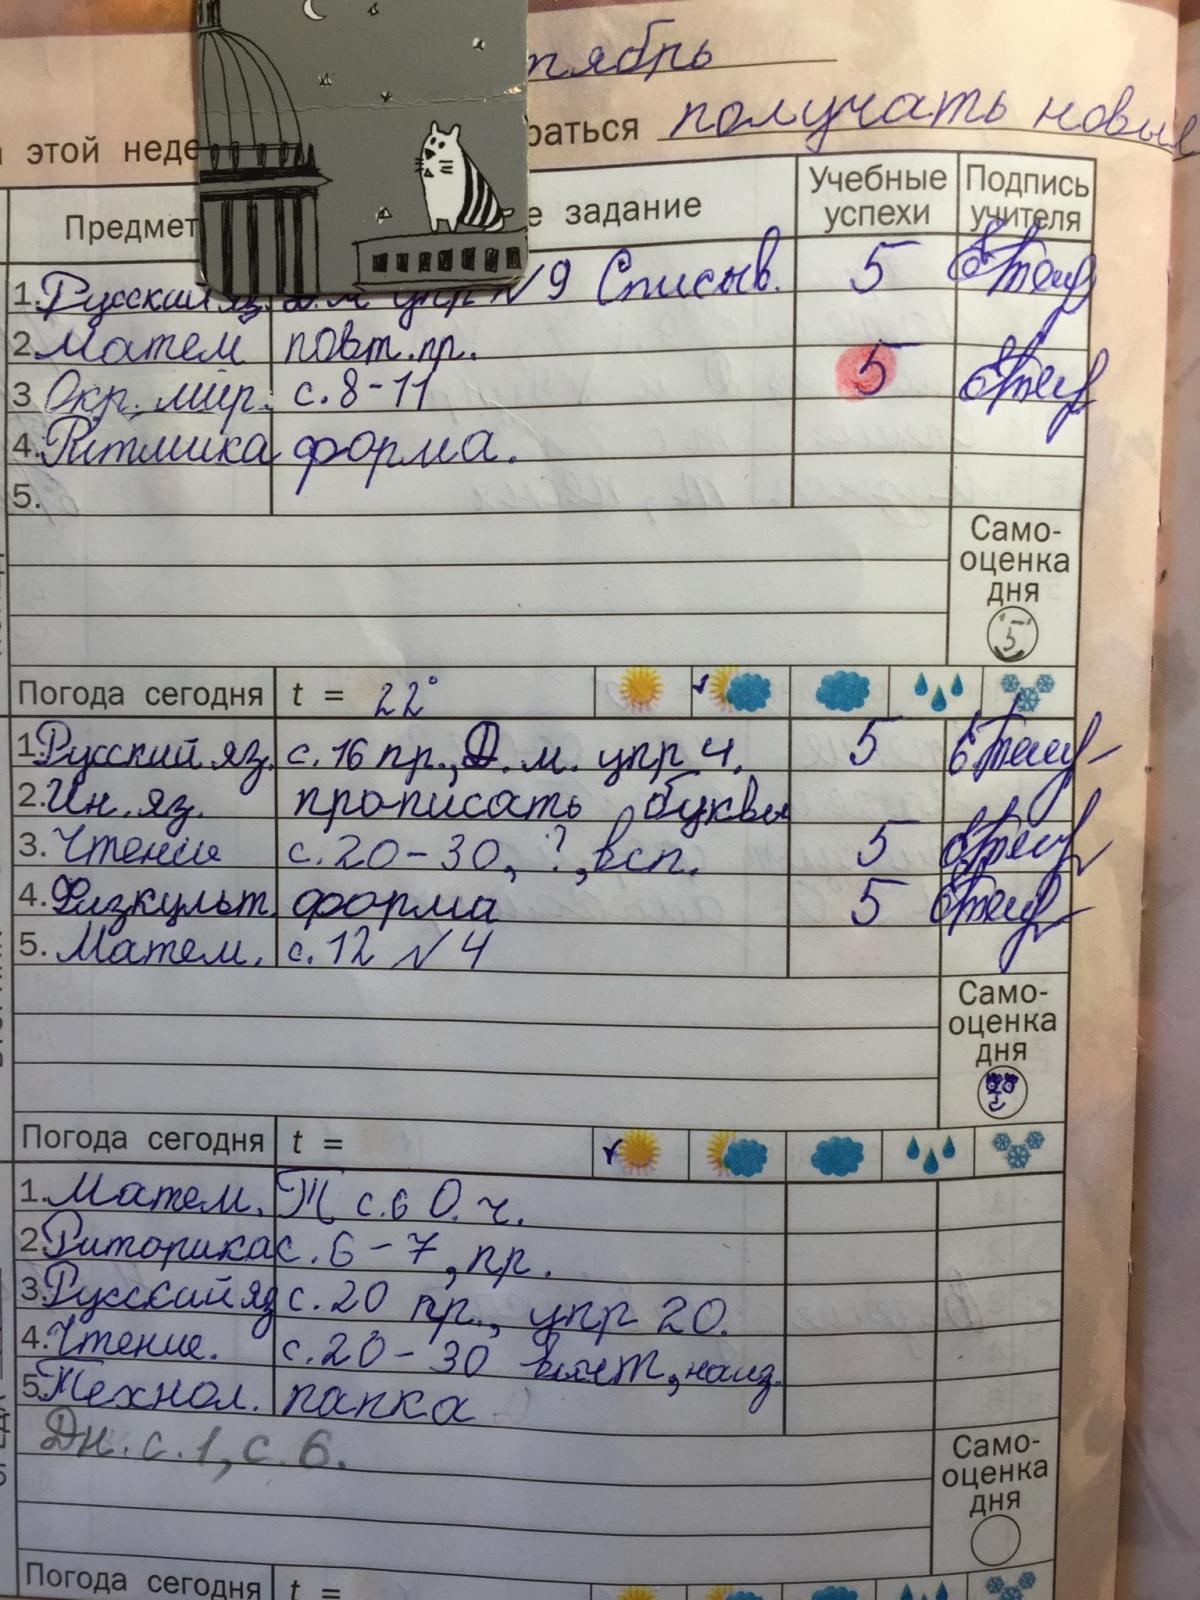 тябрь
этой неде раться получать новые
Предмет е задание Учебные успехи Подпись учителя
1. Русский яз. упр №9 Списыв. 5
2. Матем повт.пр.
3 Окр. мир. с. 8-11 5
4. Ритмика форма.
5.
Само-
оценка
дня
5
Погода сегодня t = 22°
1. Русский яз. с. 16 пр., Д. м. упр 4. 5
2. Ин. яз. прописать буквы
3. Чтение с. 20-30, ?, всп. 5
4. Физкульт. форма 5
5. Матем. с. 12 №4
Само-
оценка
дня
Погода сегодня t =
1. Матем. Т с.6 О. ч.
2. Риторика с. 6-7, пр.
3. Русский яз с. 20 пр., упр 20.
4. Чтение. с. 20-30
5. Технол. папка
Дн. с. 1, с. 6.
Само-
оценка
дня
Погода сегодня t =